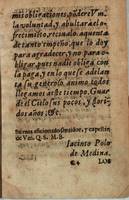 mis obligaciones, poder e Vm.
la voluntad, y abultar el o-
frecimiento, recibalo, a quenta
de tanto empeño, que lo doy
para agradecer, y no para o-
bligar, pues nadie obliga con
la paga, y en lo que se adelan-
ta su generoso animo todos
llegamos a este tiempo. Guar-
de el Cielo sus pocos, y flori-
dos años, &c.
Su mas aficionado servidor, y capellan
de Vm. Q. S. M. B.
Iacinto Polo
de Medina.
LOS